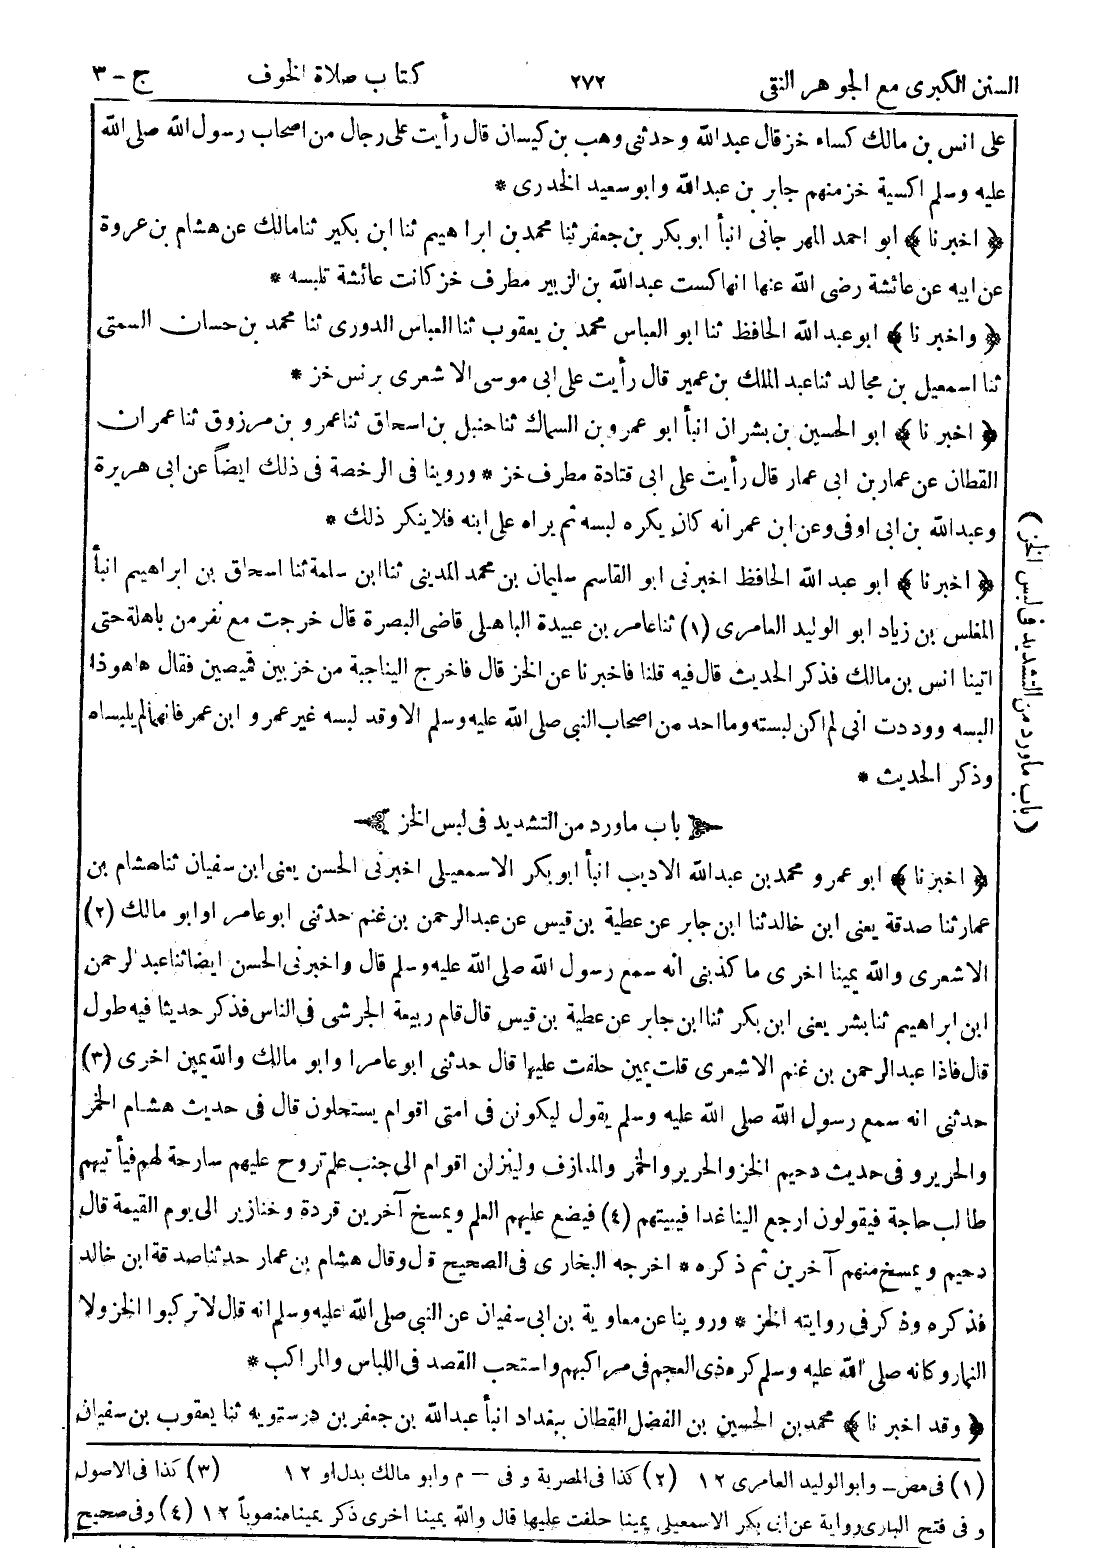 السنن الكبرى مع الجوهر النقى ٢٧٢ كتاب صلاة الخوف ج - ٣
على انس بن مالك كساء خز قال عبد الله وحدثنى وهب بن كيسان قال رأيت على رجال من اصحاب رسول الله صلى الله
عليه وسلم اكسية خز منهم جابر بن عبد الله وابو سعيد الخدرى *
﴿ اخبرنا ﴾ ابو احمد المهرجانى انبأ ابو بكر بن جعفر ثنا محمد بن ابراهيم ثنا ابن بكير ثنا مالك عن هشام بن عروة
عن ابيه عن عائشة رضى الله عنها انها كست عبد الله بن الزبير مطرف خز كانت عائشة تلبسه *
﴿ واخبرنا ﴾ ابو عبد الله الحافظ ثنا ابو العباس محمد بن يعقوب ثنا العباس الدورى ثنا محمد بن حسان السمتى
ثنا اسمعيل بن مجالد ثنا عبد الملك بن عمير قال رأيت على ابى موسى الاشعرى برنس خز *
﴿ اخبرنا ﴾ ابو الحسين بن بشران انبأ ابو عمرو بن السماك ثنا حنبل بن اسحاق ثنا عمرو بن مرزوق ثنا عمران
القطان عن عمار بن ابى عمار قال رأيت على ابى قتادة مطرف خز * وروينا فى الرخصة فى ذلك ايضاً عن ابى هريرة
وعبد الله بن ابى اوفى وعن ابن عمر انه كان يكره لبسه ثم يراه على ابنه فلا ينكر ذلك *
﴿ اخبرنا ﴾ ابو عبد الله الحافظ اخبرنى ابو القاسم سليمان بن محمد المدينى ثنا ابن سلمة ثنا اسحاق بن ابراهيم انبأ
المغلس بن زياد ابو الوليد العامرى (١) ثنا عامر بن عبيدة الباهلى قاضى البصرة قال خرجت مع نفر من باهلة حتى
اتينا انس بن مالك فذكر الحديث قال فيه قلنا فاخبرنا عن الخز قال فاخرج الينا جبة من خز بين قميصين فقال ها هوذا
البسه ووددت انى لم اكن لبسته وما احد من اصحاب النبى صلى الله عليه وسلم الا وقد لبسه غير عمر و ابن عمر فانهما لم يلبساه
وذكر الحديث *
باب ما ورد من التشديد فى لبس الخز
﴿ اخبرنا ﴾ ابو عمرو محمد بن عبد الله الاديب انبأ ابو بكر الاسمعيلى اخبرنى الحسن يعنى ابن سفيان ثنا هشام بن
عمار ثنا صدقة يعنى ابن خالد ثنا ابن جابر عن عطية بن قيس عن عبد الرحمن بن غنم حدثنى ابو عامر او ابو مالك (٢)
الاشعرى والله يمينا اخرى ما كذبنى انه سمع رسول الله صلى الله عليه وسلم قال واخبرنى الحسن ايضا ثنا عبد الرحمن
ابن ابراهيم ثنا بشر يعنى ابن بكر ثنا ابن جابر عن عطية بن قيس قال قام ربيعة الجرشى فى الناس فذكر حديثا فيه طول
قال فاذا عبد الرحمن بن غنم الاشعرى قلت يمين حلفت عليها قال حدثنى ابو عامر او ابو مالك والله يمين اخرى (٣)
حدثنى انه سمع رسول الله صلى الله عليه وسلم يقول ليكونن فى امتى اقوام يستحلون قال فى حديث هشام الخمر
والحرير و فى حديث دحيم الخز والحرير والخمر والمعازف ولينزلن اقوام الى جنب علم تروح عليهم سارحة لهم فيأتيهم
طالب حاجة فيقولون ارجع الينا غدا فيبيتهم (٤) فيضع عليهم العلم ويمسخ آخرين قردة وخنازير الى يوم القيمة قال
دحيم ويمسخ منهم آخرين ثم ذكره * اخرجه البخارى فى الصحيح قال وقال هشام بن عمار حدثنا صدقة ابن خالد
فذكره وذكر فى روايته الخز * وروينا عن معاوية بن ابى سفيان عن النبى صلى الله عليه وسلم انه قال لا تركبوا الخز ولا
النمار وكانه صلى الله عليه وسلم كره زى العجم فى مراكبهم واستحب القصد فى اللباس والمراكب *
﴿ وقد اخبرنا ﴾ محمد بن الحسين بن الفضل القطان ببغداد انبأ عبد الله بن جعفر بن درستويه ثنا يعقوب بن سفيان
(١) فى مص - وابو الوليد العامرى ١٢ (٢) كذا فى المصرية و فى - م وابو مالك بدل او ١٢ (٣) كذا فى الاصول
و فى فتح البارى رواية عن ابى بكر الاسمعيلى يمينا حلفت عليها قال والله يمينا اخرى ذكر يمينا منصوباً ١٢ (٤) وفى صحيح
(باب ما ورد من التشديد فى لبس الخز)